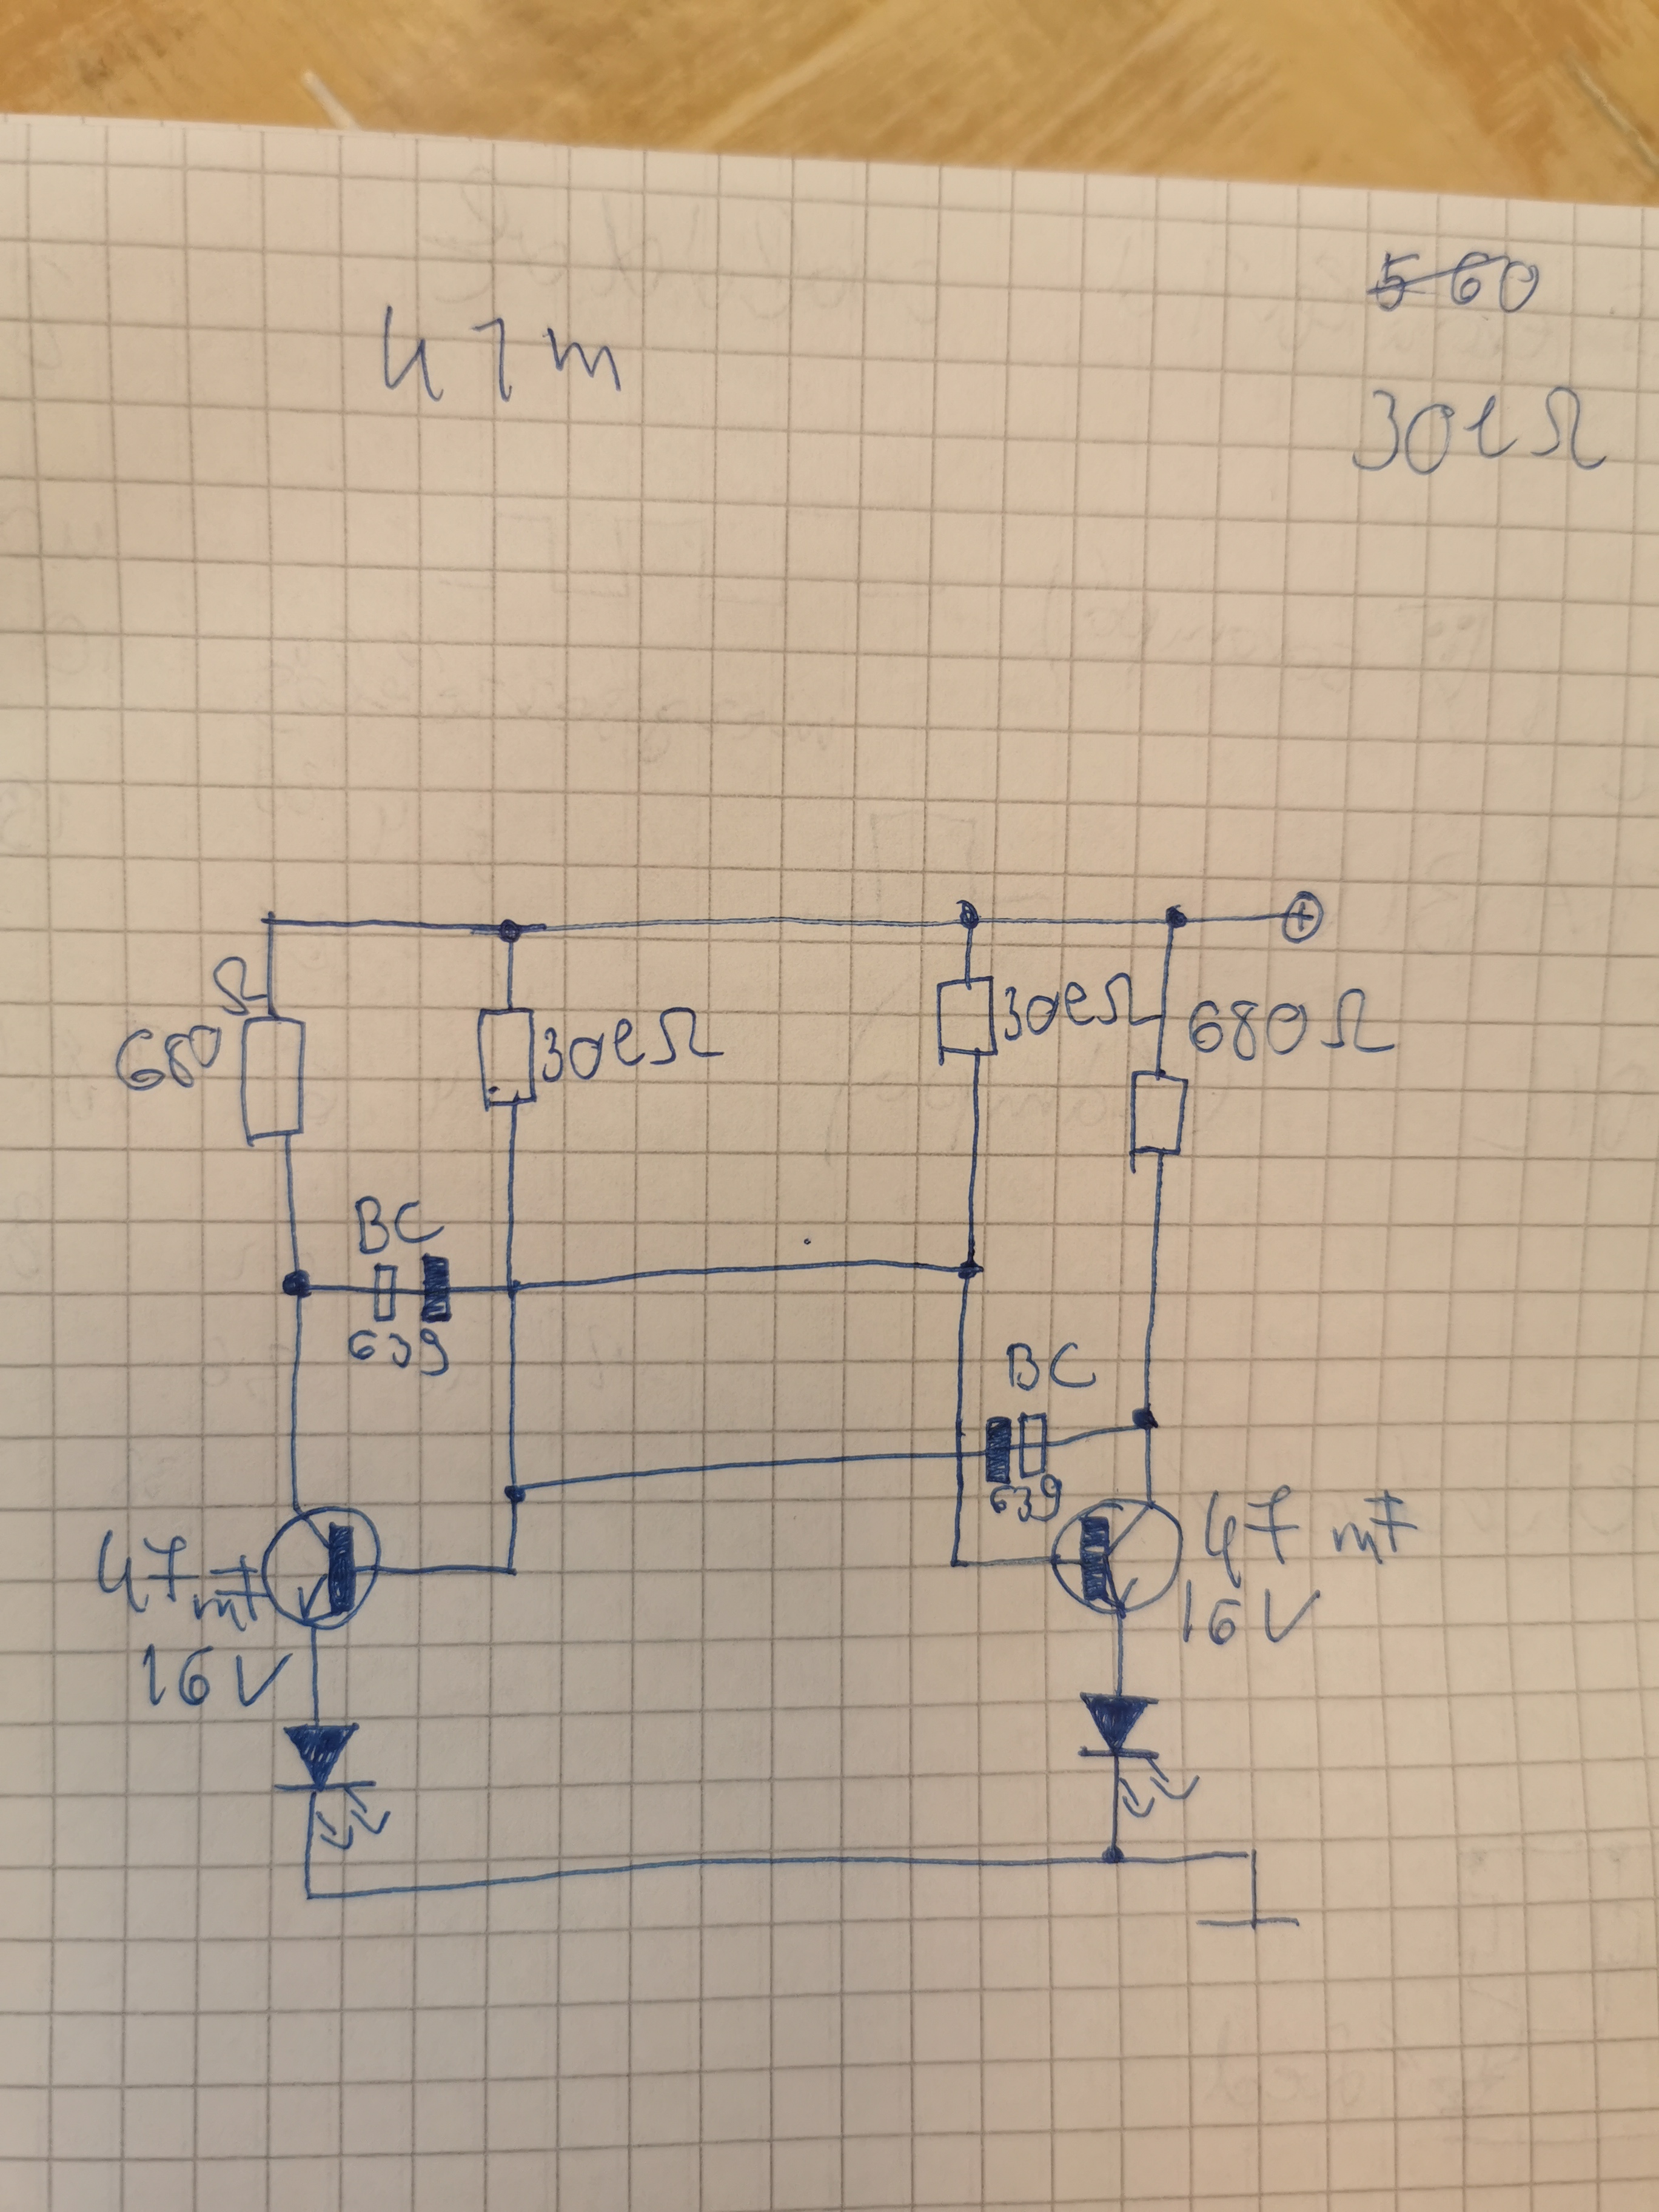 560
47m
30kΩ
680Ω
30kΩ
30kΩ
680Ω
BC
639
BC
639
47mF
16V
47mF
16V